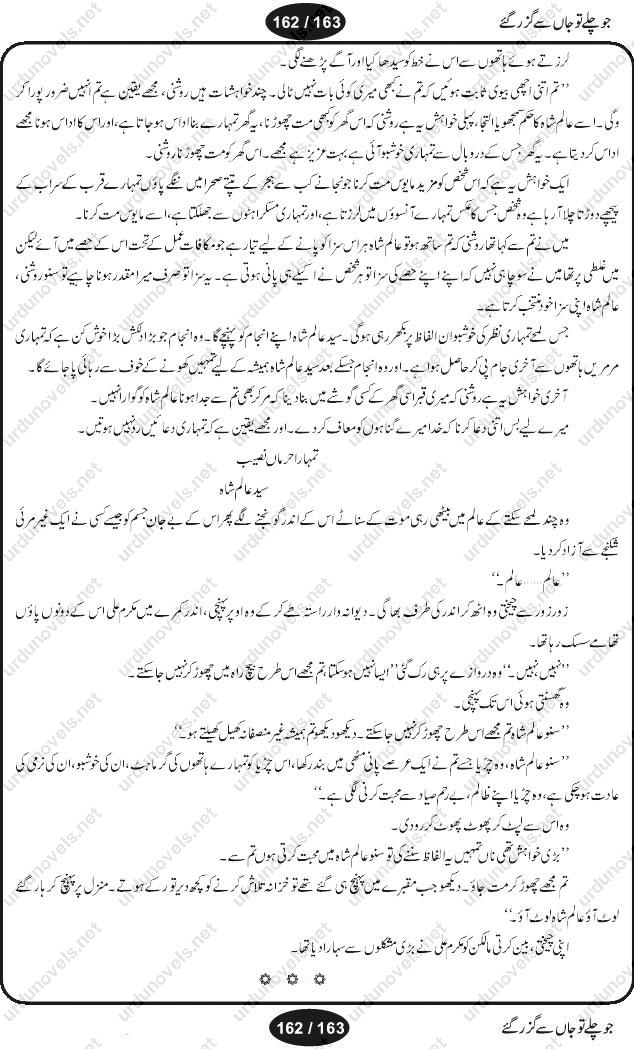 جو چلے تو جاں سے گزر گئے
162 / 163
لرزتے ہوئے ہاتھوں سے اس نے خط کو سیدھا کیا اور آگے پڑھنے لگی۔
’’تم اتنی اچھی بیوی ثابت ہوئیں کہ تم نے کبھی میری کوئی بات نہیں ٹالی۔ چند خواہشات ہیں روشنی، مجھے یقین ہے تم انہیں ضرور پورا کر
وگی۔ اسے عالم شاہ کا حکم سمجھو یا التجا، پہلی خواہش یہ ہے روشنی کہ اس گھر کو کبھی مت چھوڑنا، یہ گھر تمہارے بنا اداس ہو جاتا ہے، اور اس کا اداس ہونا مجھے
اداس کر دیتا ہے۔ یہ گھر جس کے در و بال سے تمہاری خوشبو آئی ہے بہت عزیز ہے مجھے۔ اس گھر کو مت چھوڑنا روشنی۔
ایک خواہش یہ ہے کہ اس شخص کو مزید مایوس مت کرنا جو نجانے کب سے ہجر کے تپتے صحرا میں ننگے پاؤں تمہارے قرب کے سراب کے
پیچھے دوڑتا چلا آ رہا ہے وہ شخص جس کا عکس تمہارے آنسوؤں میں لرزتا ہے، اور تمہاری مسکراہٹوں سے جھلکتا ہے، اسے مایوس مت کرنا۔
میں نے تم سے کہا تھا روشنی کہ تم ساتھ ہو تو عالم شاہ ہر اس سزا کو پانے کے لیے تیار ہے جو مکافات عمل کے تحت اس کے حصے میں آئے لیکن
میں غلطی پر تھا میں نے سوچا ہی نہیں کہ اپنے اپنے حصے کی سزا تو ہر شخص نے اکیلے ہی پانی ہوتی ہے۔ یہ سزا تو صرف میرا مقدر ہونا چاہیے تو سنو روشنی،
عالم شاہ اپنی سزا خود منتخب کرتا ہے۔
جس لمحے تمہاری نظر کی خوشبو ان الفاظ پر بکھر رہی ہوگی۔ سید عالم شاہ اپنے انجام کو پہنچے گا۔ وہ انجام جو بڑا دلکش بڑا خوش کن ہے کہ تمہاری
مرمریں ہاتھوں سے آخری جام پی کر حاصل ہوا ہے۔ اور وہ انجام جسکے بعد سید عالم شاہ ہمیشہ کے لیے تمہیں کھونے کے خوف سے رہائی پا جائے گا۔
آخری خواہش یہ ہے روشنی کہ میری قبر اسی گھر کے کسی گوشے میں بنا دینا کہ مر کر بھی تم سے جدا ہونا عالم شاہ کو گوارا نہیں۔
میرے لیے بس اتنی دعا کرنا کہ خدا میرے گناہوں کو معاف کر دے۔ اور مجھے یقین ہے کہ تمہاری دعائیں رد نہیں ہوتیں۔
تمہارا حرماں نصیب
سید عالم شاہ
وہ چند لمحے سکتے کے عالم میں بیٹھی رہی موت کے سناٹے اس کے اندر گونجنے لگے پھر اس کے بے جان جسم کو جیسے کسی نے ایک غیر مرئی
شکنجے سے آزاد کر دیا۔
’’عالم...... عالم۔‘‘
زور زور سے چیختی وہ اٹھ کر اندر کی طرف بھاگی۔ دیوانہ وار راستہ طے کر کے وہ اوپر پہنچی، اندر کمرے میں مکرم علی اس کے دونوں پاؤں
تھامے سسک رہا تھا۔
’’نہیں نہیں۔‘‘ وہ دروازے پر ہی رک گئی ’’ایسا نہیں ہو سکتا، تم مجھے اس طرح بیچ راہ میں چھوڑ کر نہیں جا سکتے۔
وہ گھسٹتی ہوئی اس تک پہنچی۔
’’سنو عالم شاہ تم مجھے اس طرح چھوڑ کر نہیں جا سکتے۔ دیکھو دیکھو تم ہمیشہ غیر منصفانہ کھیل کھیلتے ہو۔‘‘
’’سنو عالم شاہ، وہ چڑیا جسے تم نے ایک عرصے پانی مٹھی میں بند رکھا، اس چڑیا کو تمہارے ہاتھوں کی گرماہٹ، ان کی خوشبو، ان کی نرمی کی
عادت ہو چکی ہے، وہ چڑیا اپنے ظالم، بے رحم صیاد سے محبت کرنی لگی ہے۔‘‘
وہ اس سے لپٹ کر پھوٹ پھوٹ کر رو دی۔
’’بڑی خواہش تھی ناں تمہیں یہ الفاظ سننے کی تو سنو عالم شاہ میں محبت کرتی ہوں تم سے۔
تم مجھے چھوڑ کر مت جاؤ۔ دیکھو جب مقبرے میں پہنچ ہی گئے تھے تو خزانہ تلاش کرنے کو کچھ دیر تو رکے ہوتے۔ منزل پر پہنچ کر ہار گئے
لوٹ آؤ عالم شاہ لوٹ آؤ۔‘‘
اپنی چیختی، بین کرتی مالکن کو مکرم علی نے بڑی مشکلوں سے سہارا دیا تھا۔
جو چلے تو جاں سے گزر گئے
162 / 163
urdunovels.net